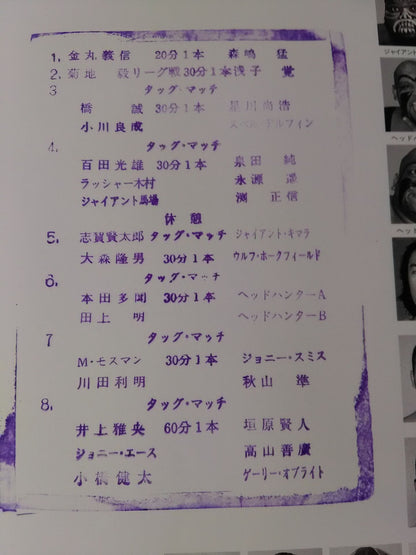 1. 金丸義信 20分1本 森嶋 猛
2. 菊地 毅 リーグ戦30分1本 浅子 覚
3 タッグ・マッチ
橋 誠 30分1本 星川尚浩
小川良成 スペル・デルフィン
4. タッグ・マッチ
百田光雄 30分1本 泉田 純
ラッシャー木村 永源 遙
ジャイアント馬場 渕 正信
休憩
5. 志賀賢太郎 タッグ・マッチ ジャイアント・キマラ
大森隆男 30分1本 ウルフ・ホークフィールド
6. タッグ・マッチ
本田多聞 30分1本 ヘッドハンターA
田上 明 ヘッドハンターB
7 タッグ・マッチ
M・モスマン 30分1本 ジョニー・スミス
川田利明 秋山 準
8. タッグ・マッチ
井上雅央 60分1本 垣原賢人
ジョニー・エース 高山善廣
小橋健太 ゲーリー・オブライト
ジャイアント